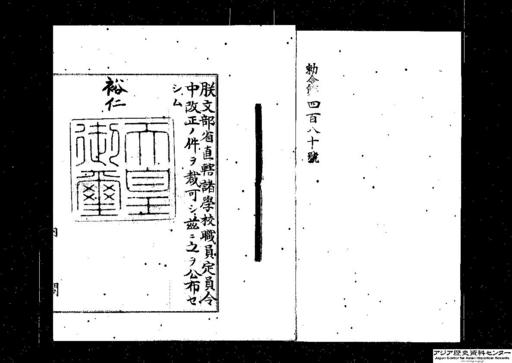 勅令第四百八十號
朕文部省直轄諸學校職員定員令
中改正ノ件ヲ裁可シ茲ニ之ヲ公布セ
シム
裕仁
天皇
御璽
内
閣
アジア歴史資料センター
Japan Center for Asian Historical Records